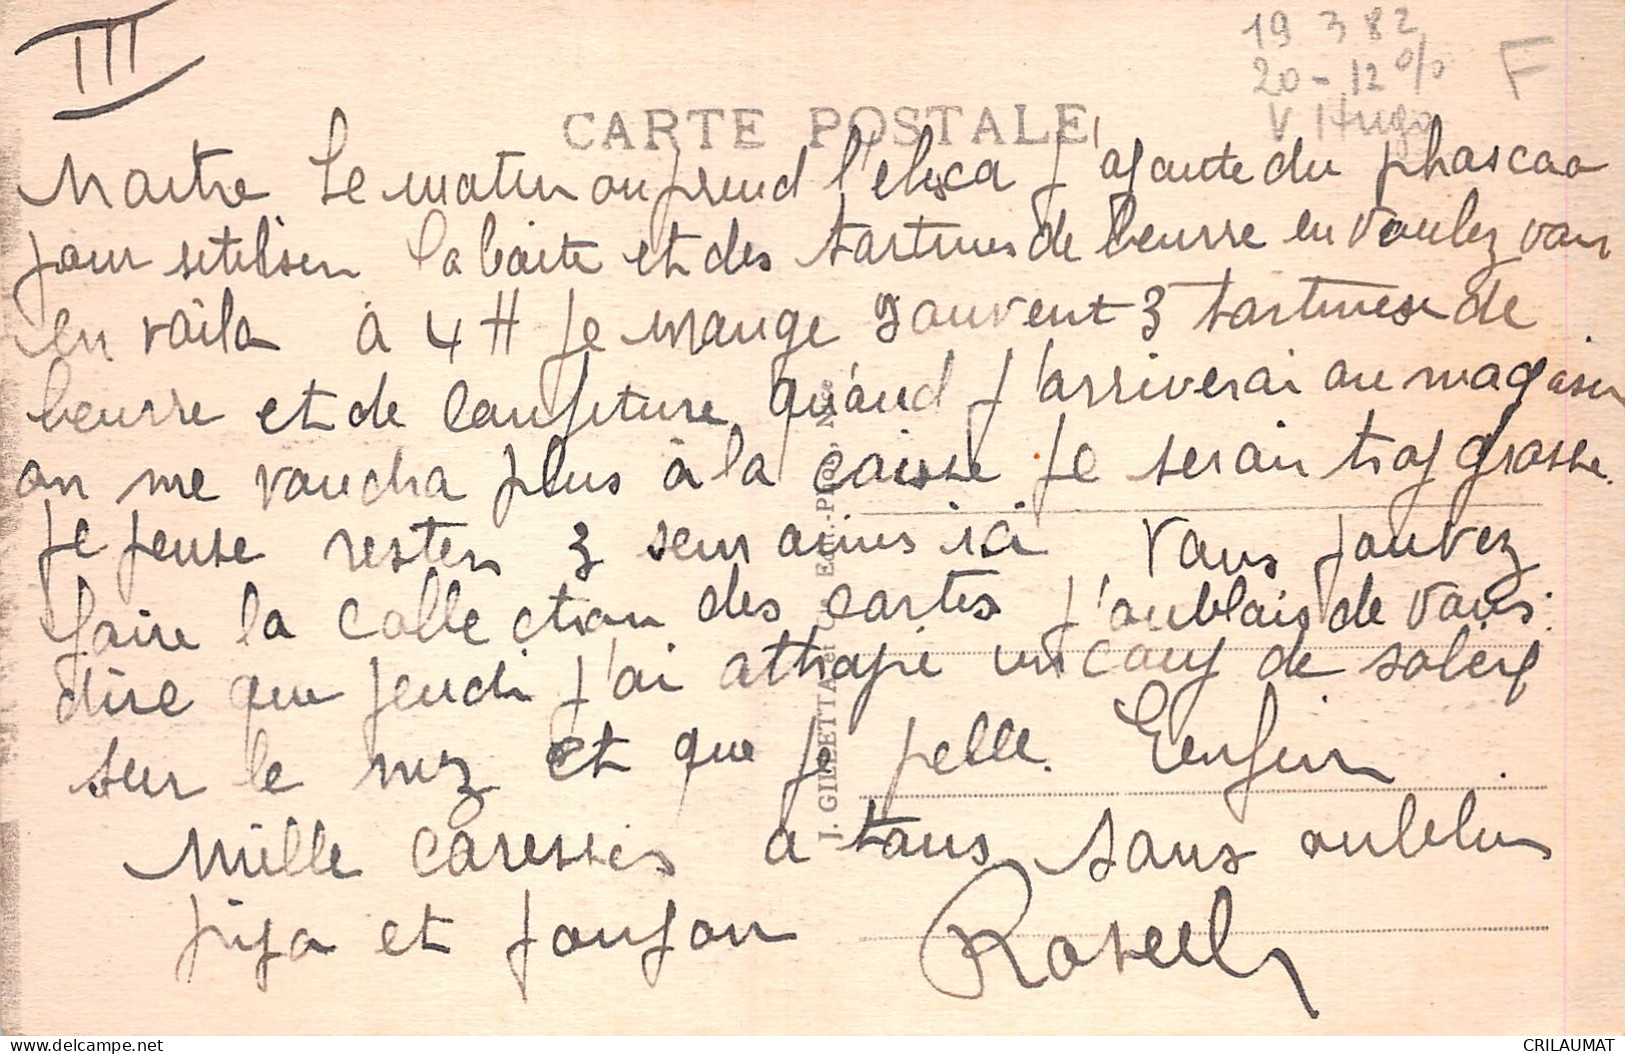 III
19 3 82
20-12 %
V Hugo
F
CARTE POSTALE
Le matin on prend l'elesca j'ajoute du phascao
pour utiliser la boite et des tartines de beurre en voulez vous
en voila à 4 H je mange souvent 3 tartines de
beurre et de confiture quand j'arriverai au magasin
on me voudra plus à la caisse je serai trop grosse.
je pense rester 3 semaines ici Vous pouvez
faire la collection des cartes j'oublais de vous
dire que jeudi j'ai attrapé un coup de soleil
sur le nez et que je pelle. Enfin
Mille caresses a tous sans oublier
et
J. GILLETTA